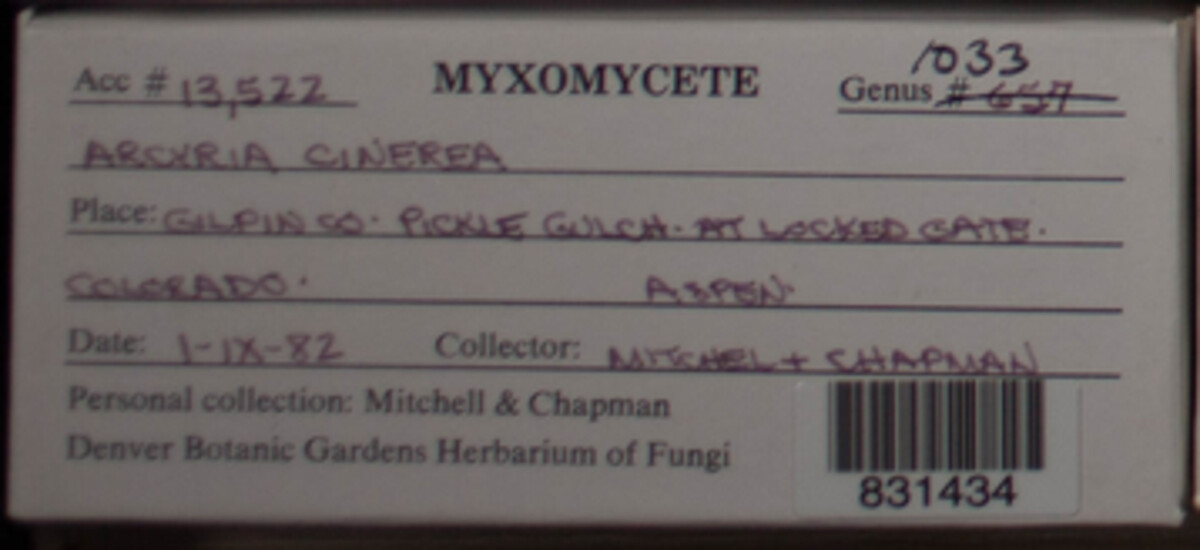 1033
Acc # 13,522 MYXOMYCETE Genus # 657
ARCYRIA CINEREA
Place: GILPIN CO. PICKLE GULCH. AT LOCKED GATE.
COLORADO. ASPEN.
Date: 1-IX-82 Collector: MITCHEL + CHAPMAN
Personal collection: Mitchell & Chapman
Denver Botanic Gardens Herbarium of Fungi
831434